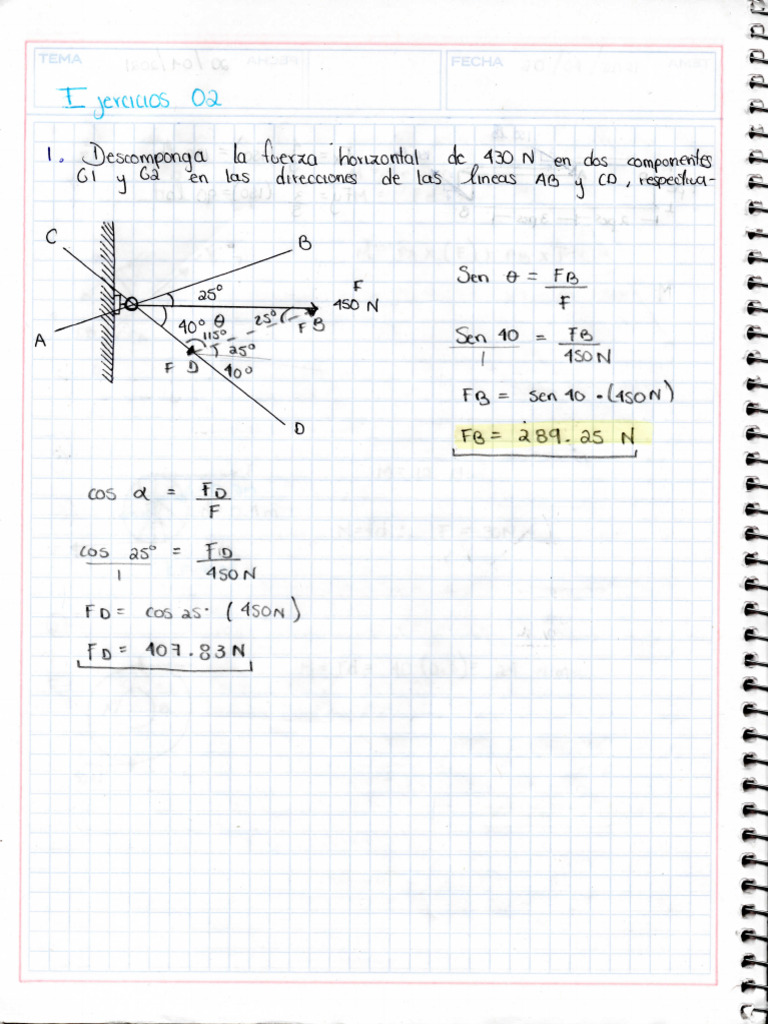 TEMA
FECHA
Ejercicios 02
1. Descomponga la fuerza horizontal de 430 N en dos componentes
C1 y C2 en las direcciones de las lineas AB y CD, respectiva-
C
B
25°
F
450 N
40° θ
25°
F B
A
115°
25°
F D
40°
D
Sen θ = FB
F
Sen 40 = FB
1 450 N
FB = sen 40 • (450N)
FB = 289.25 N
cos α = FD
F
cos 25° = FD
1 450N
FD = cos 25 · (450N)
FD = 407.83 N